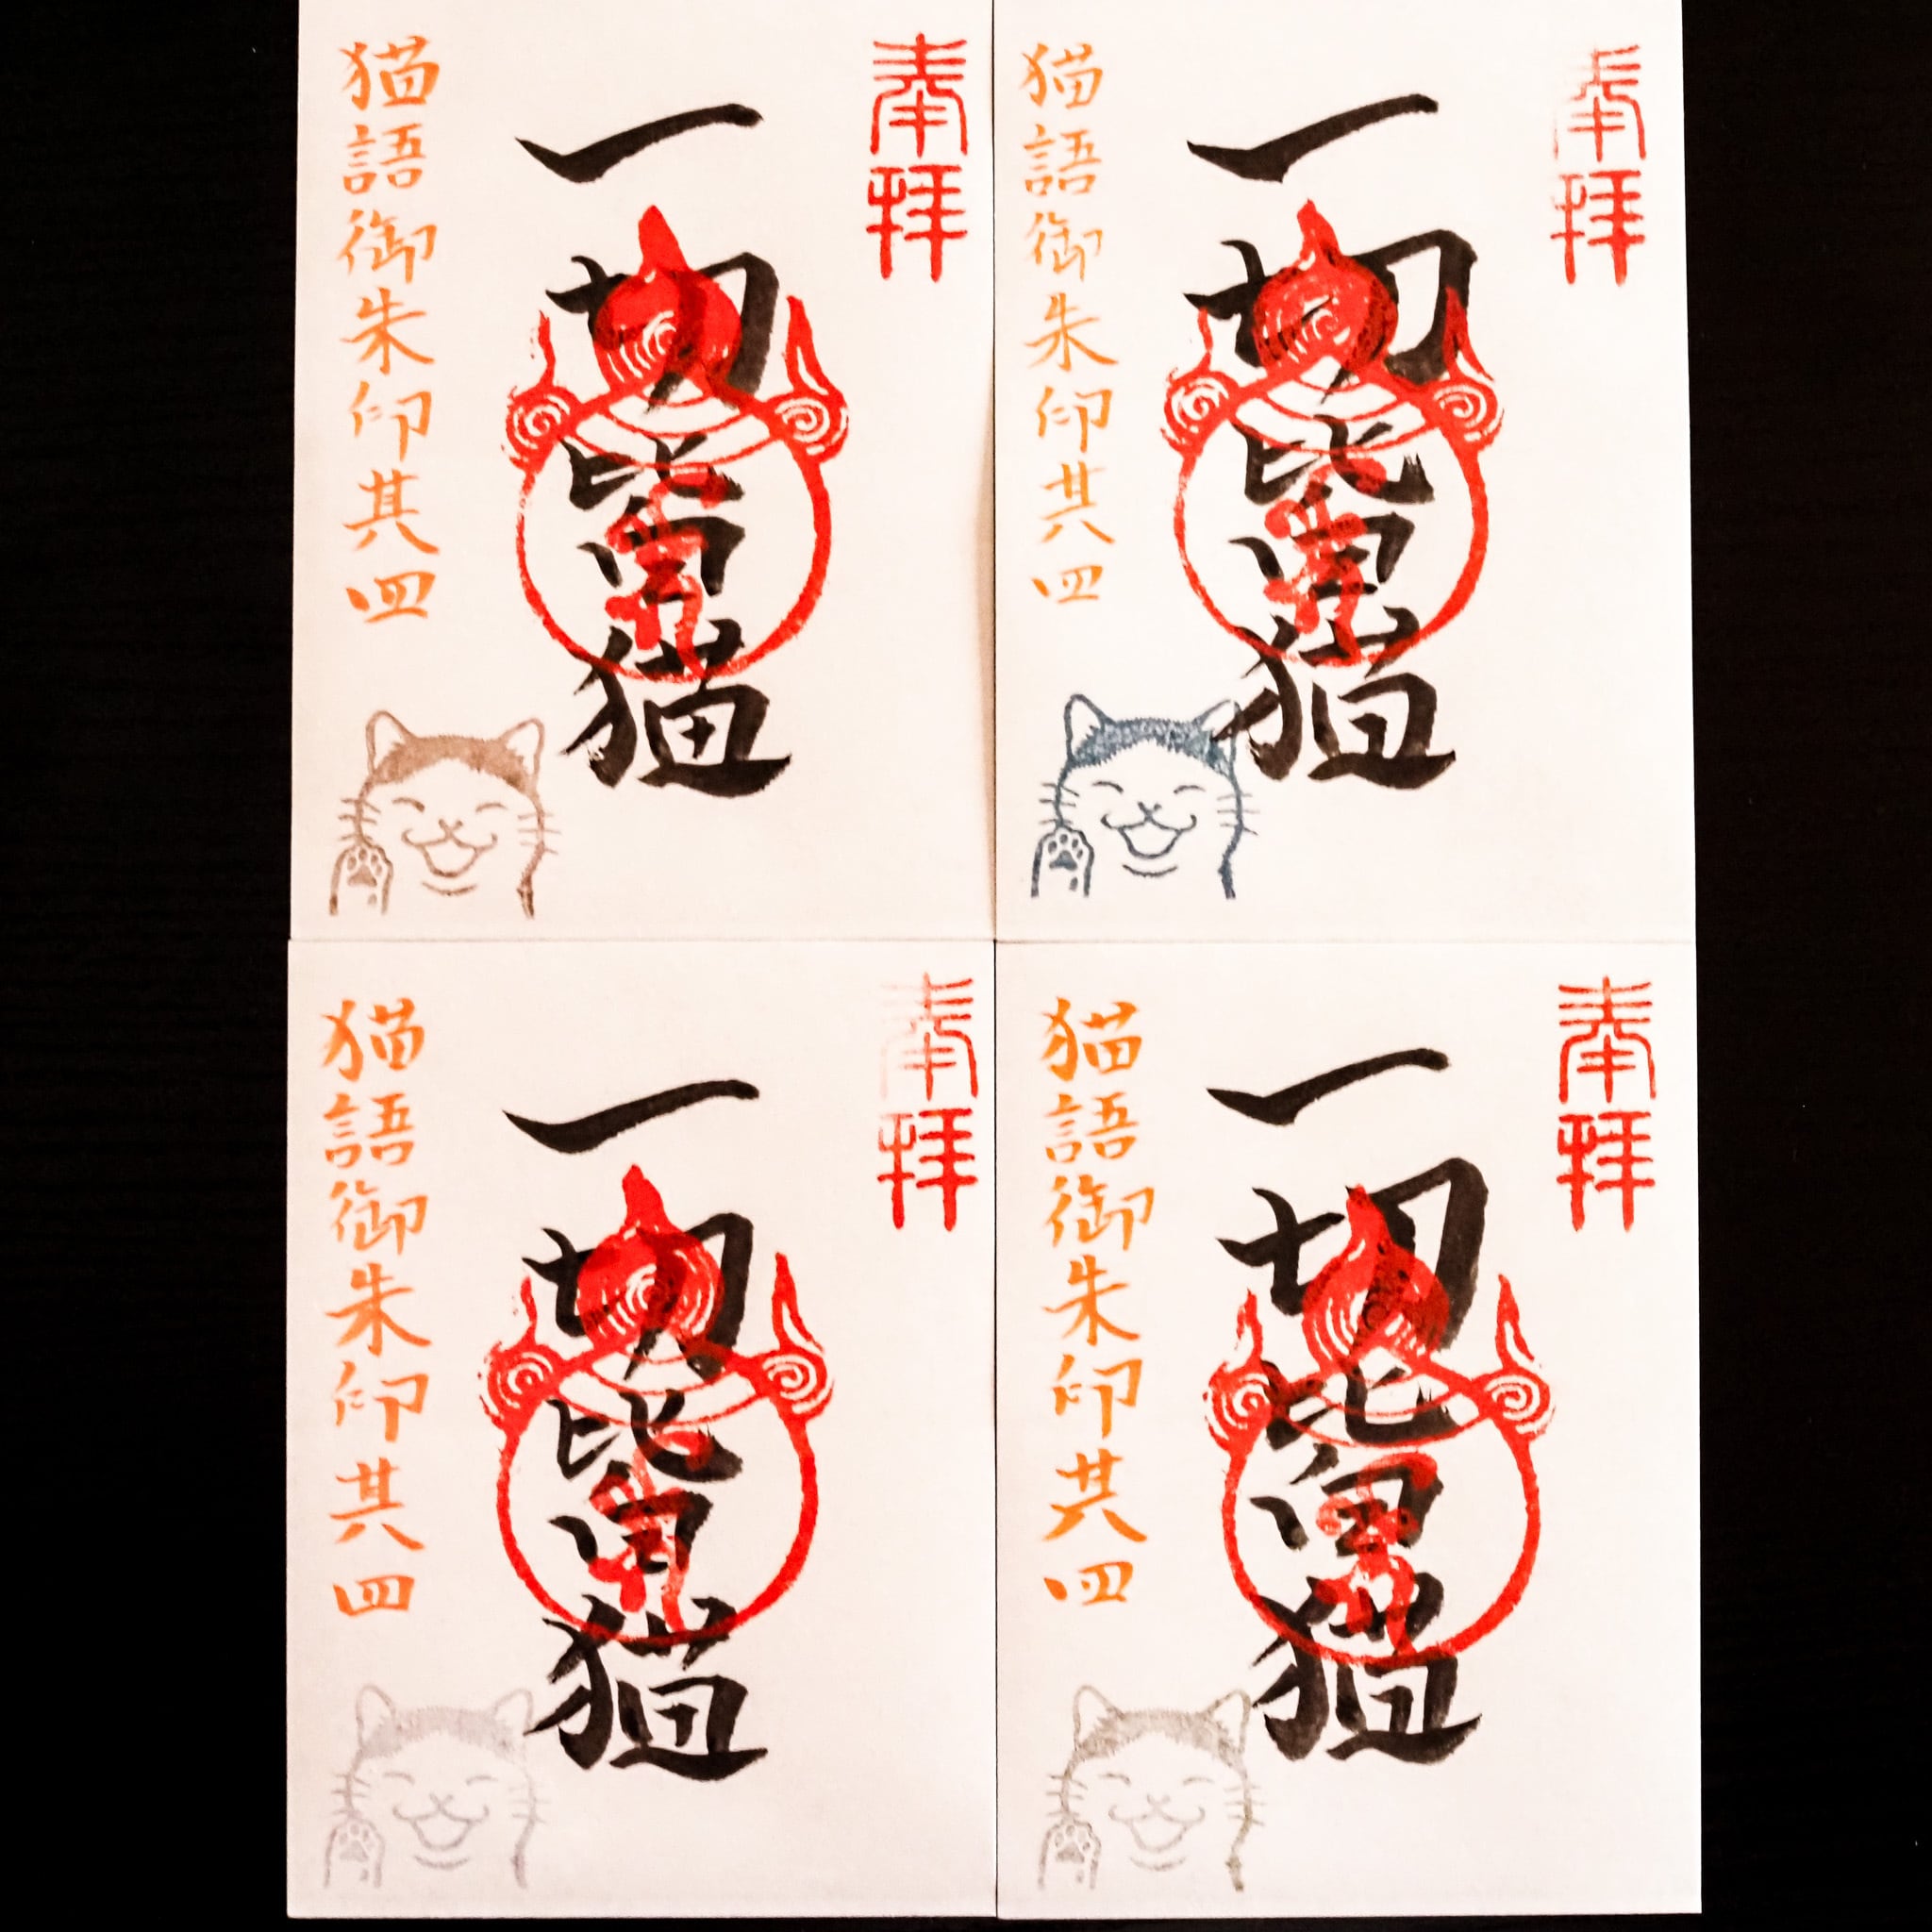 奉拝
一切皆猫
猫語御朱印其四
奉拝
一切皆猫
猫語御朱印其四
奉拝
一切皆猫
猫語御朱印其四
奉拝
一切皆猫
猫語御朱印其四